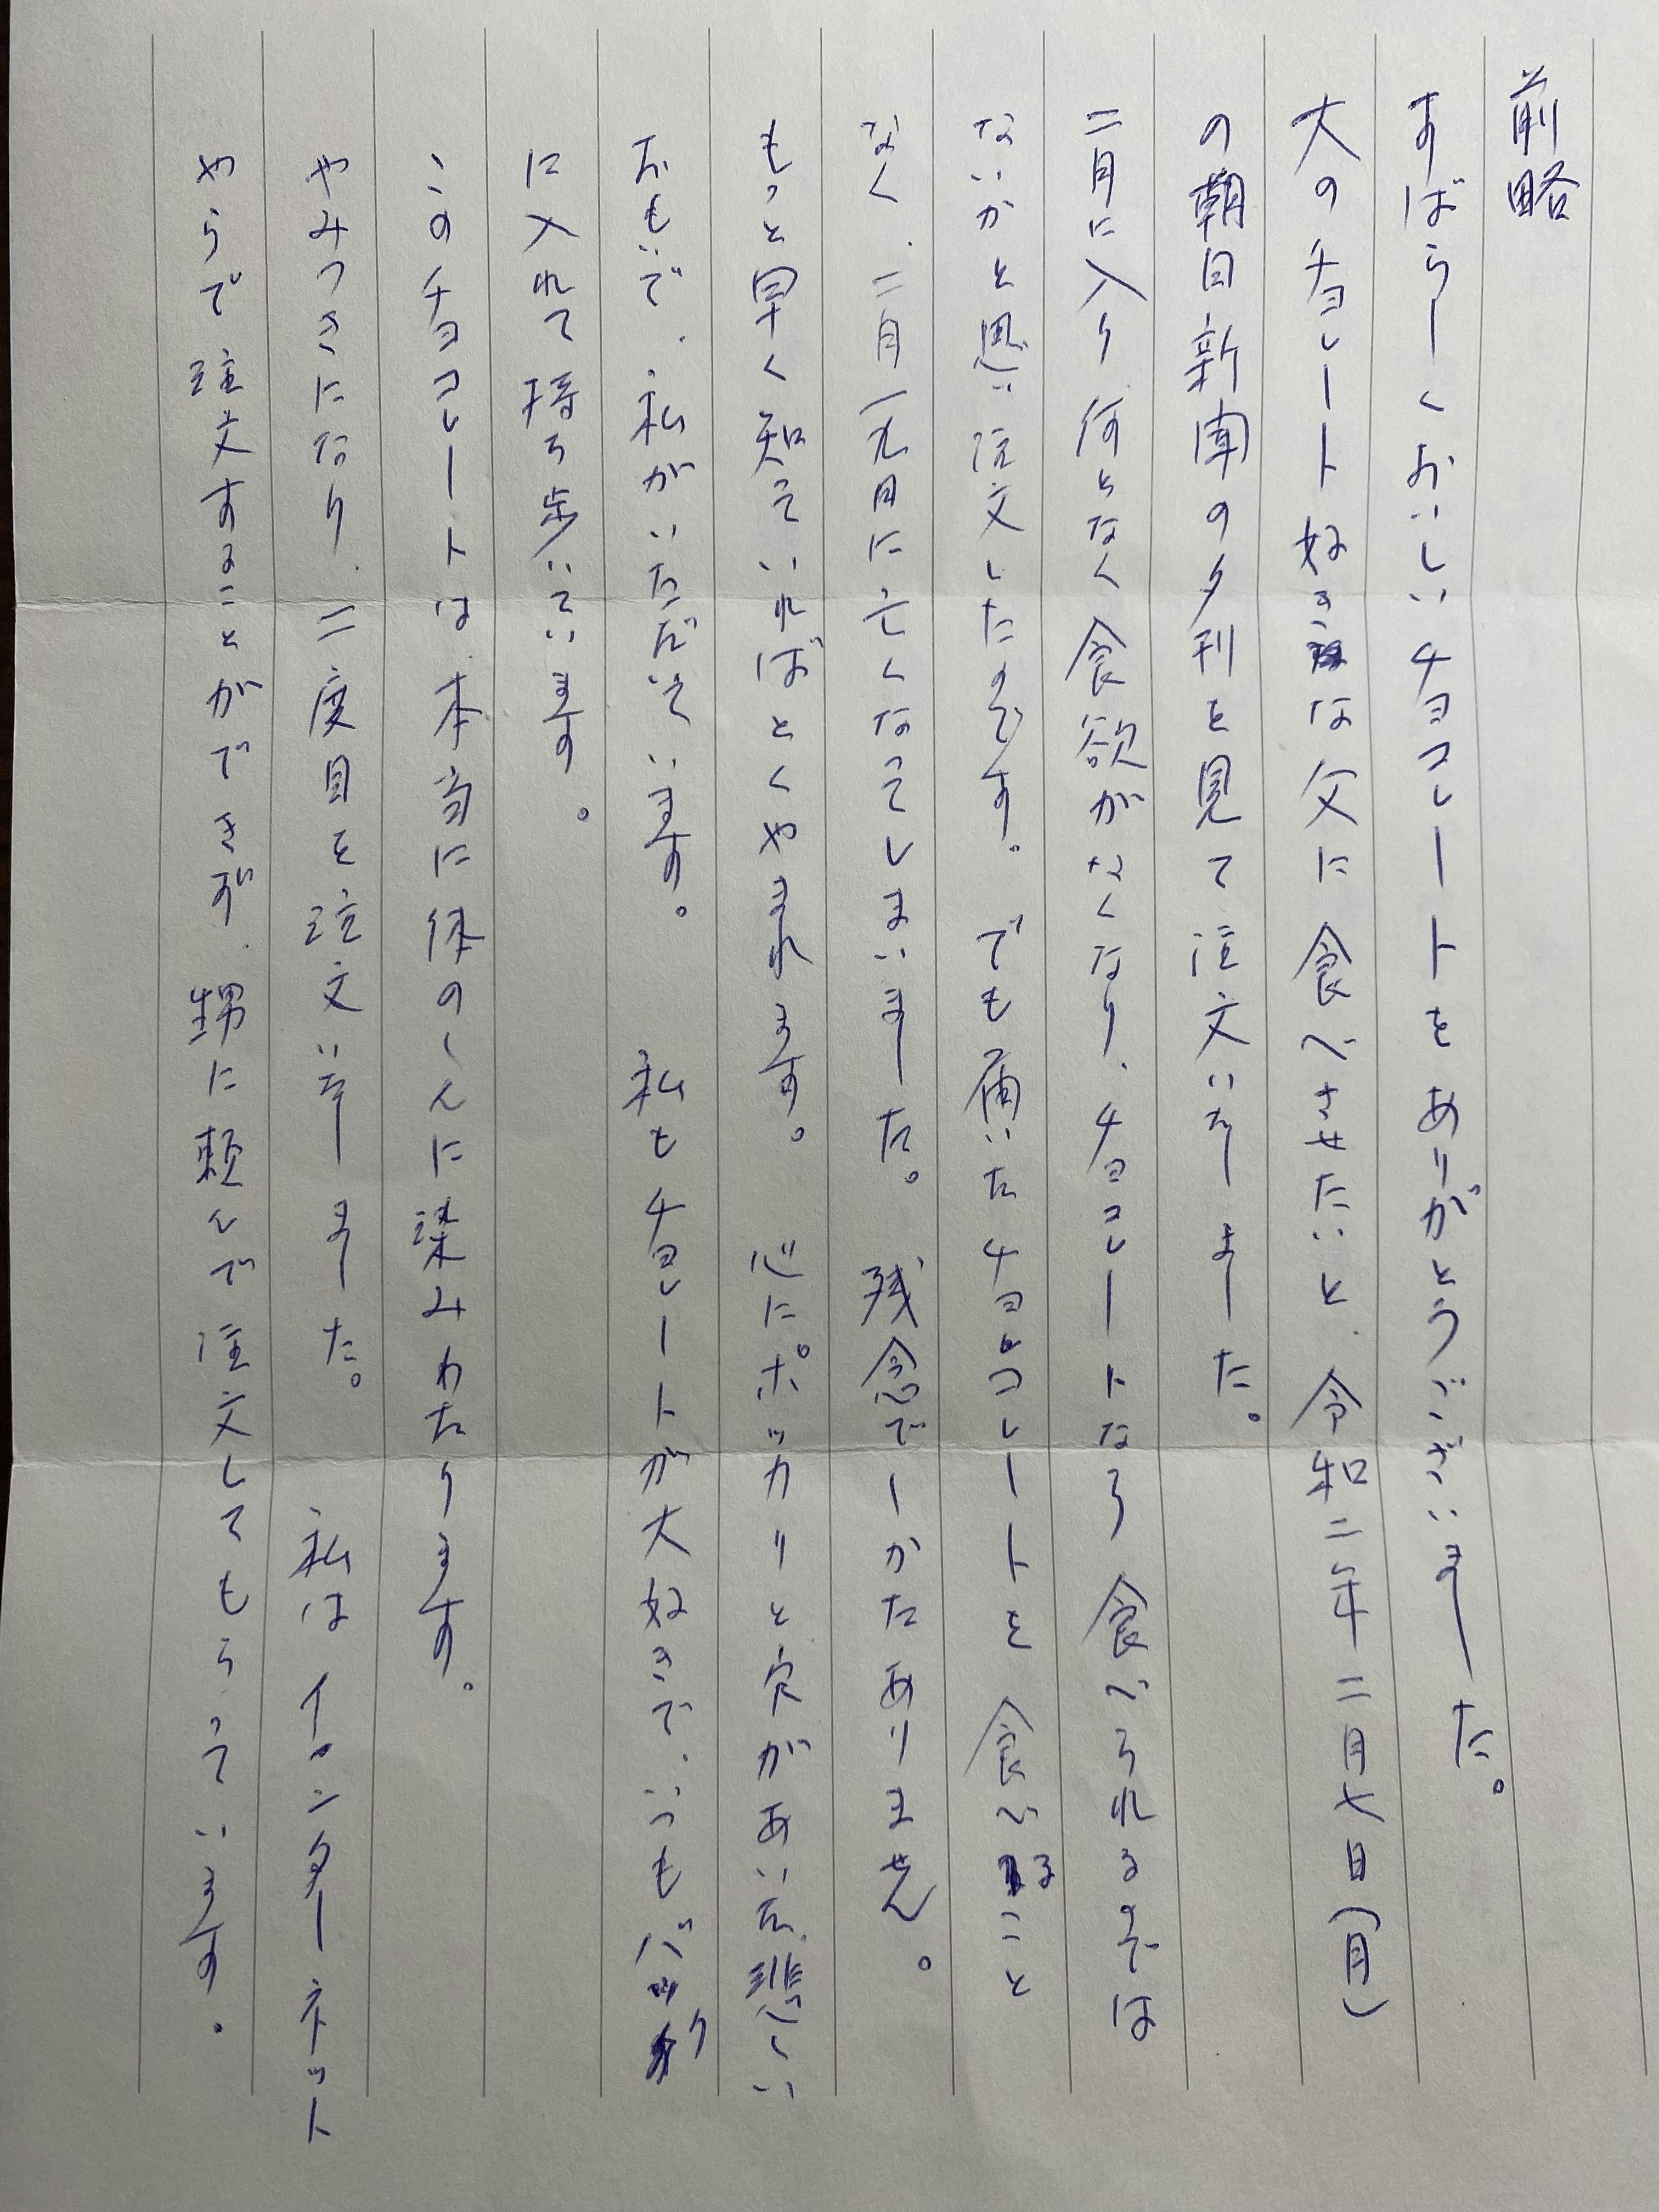 前略
すばらしくおいしいチョコレートをありがとうございました。
大のチョレート好きな父に食べさせたいと、令和二年二月七日(月)
の朝日新聞の夕刊を見て注文いたしました。
二月に入り何となく食欲がなくなり、チョコレートなら食べられるのでは
ないかと思い注文したのです。でも届いたチョコレートを食べることと
なく、二月一九日に亡くなってしまいました。残念でしかたありません。
もっと早く知っていればとくやまれます。心にポッカリと穴があいた悲しい
おもいで、私がいただいています。私もチョレートが大好きで、いつもバッグ
に入れて持ち歩いています。
このチョコレートは本当に体のしんに染みわたります。
やみつきになり、二度目を注文いたしました。私はインターネット
やらで注文することができず、甥に頼んで注文してもらっています。